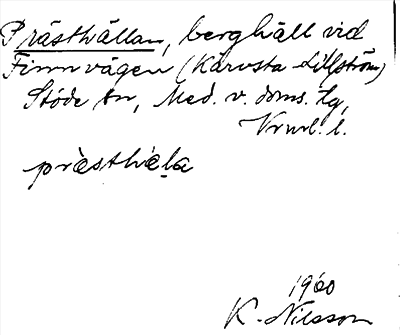 Prästhällan, berghäll vid
Finnvägen (Kärvsta Lillström)
Stöde sn, Med. v. doms. tg,
Vrnl. l.
prästhäla
1960
K. Nilsson